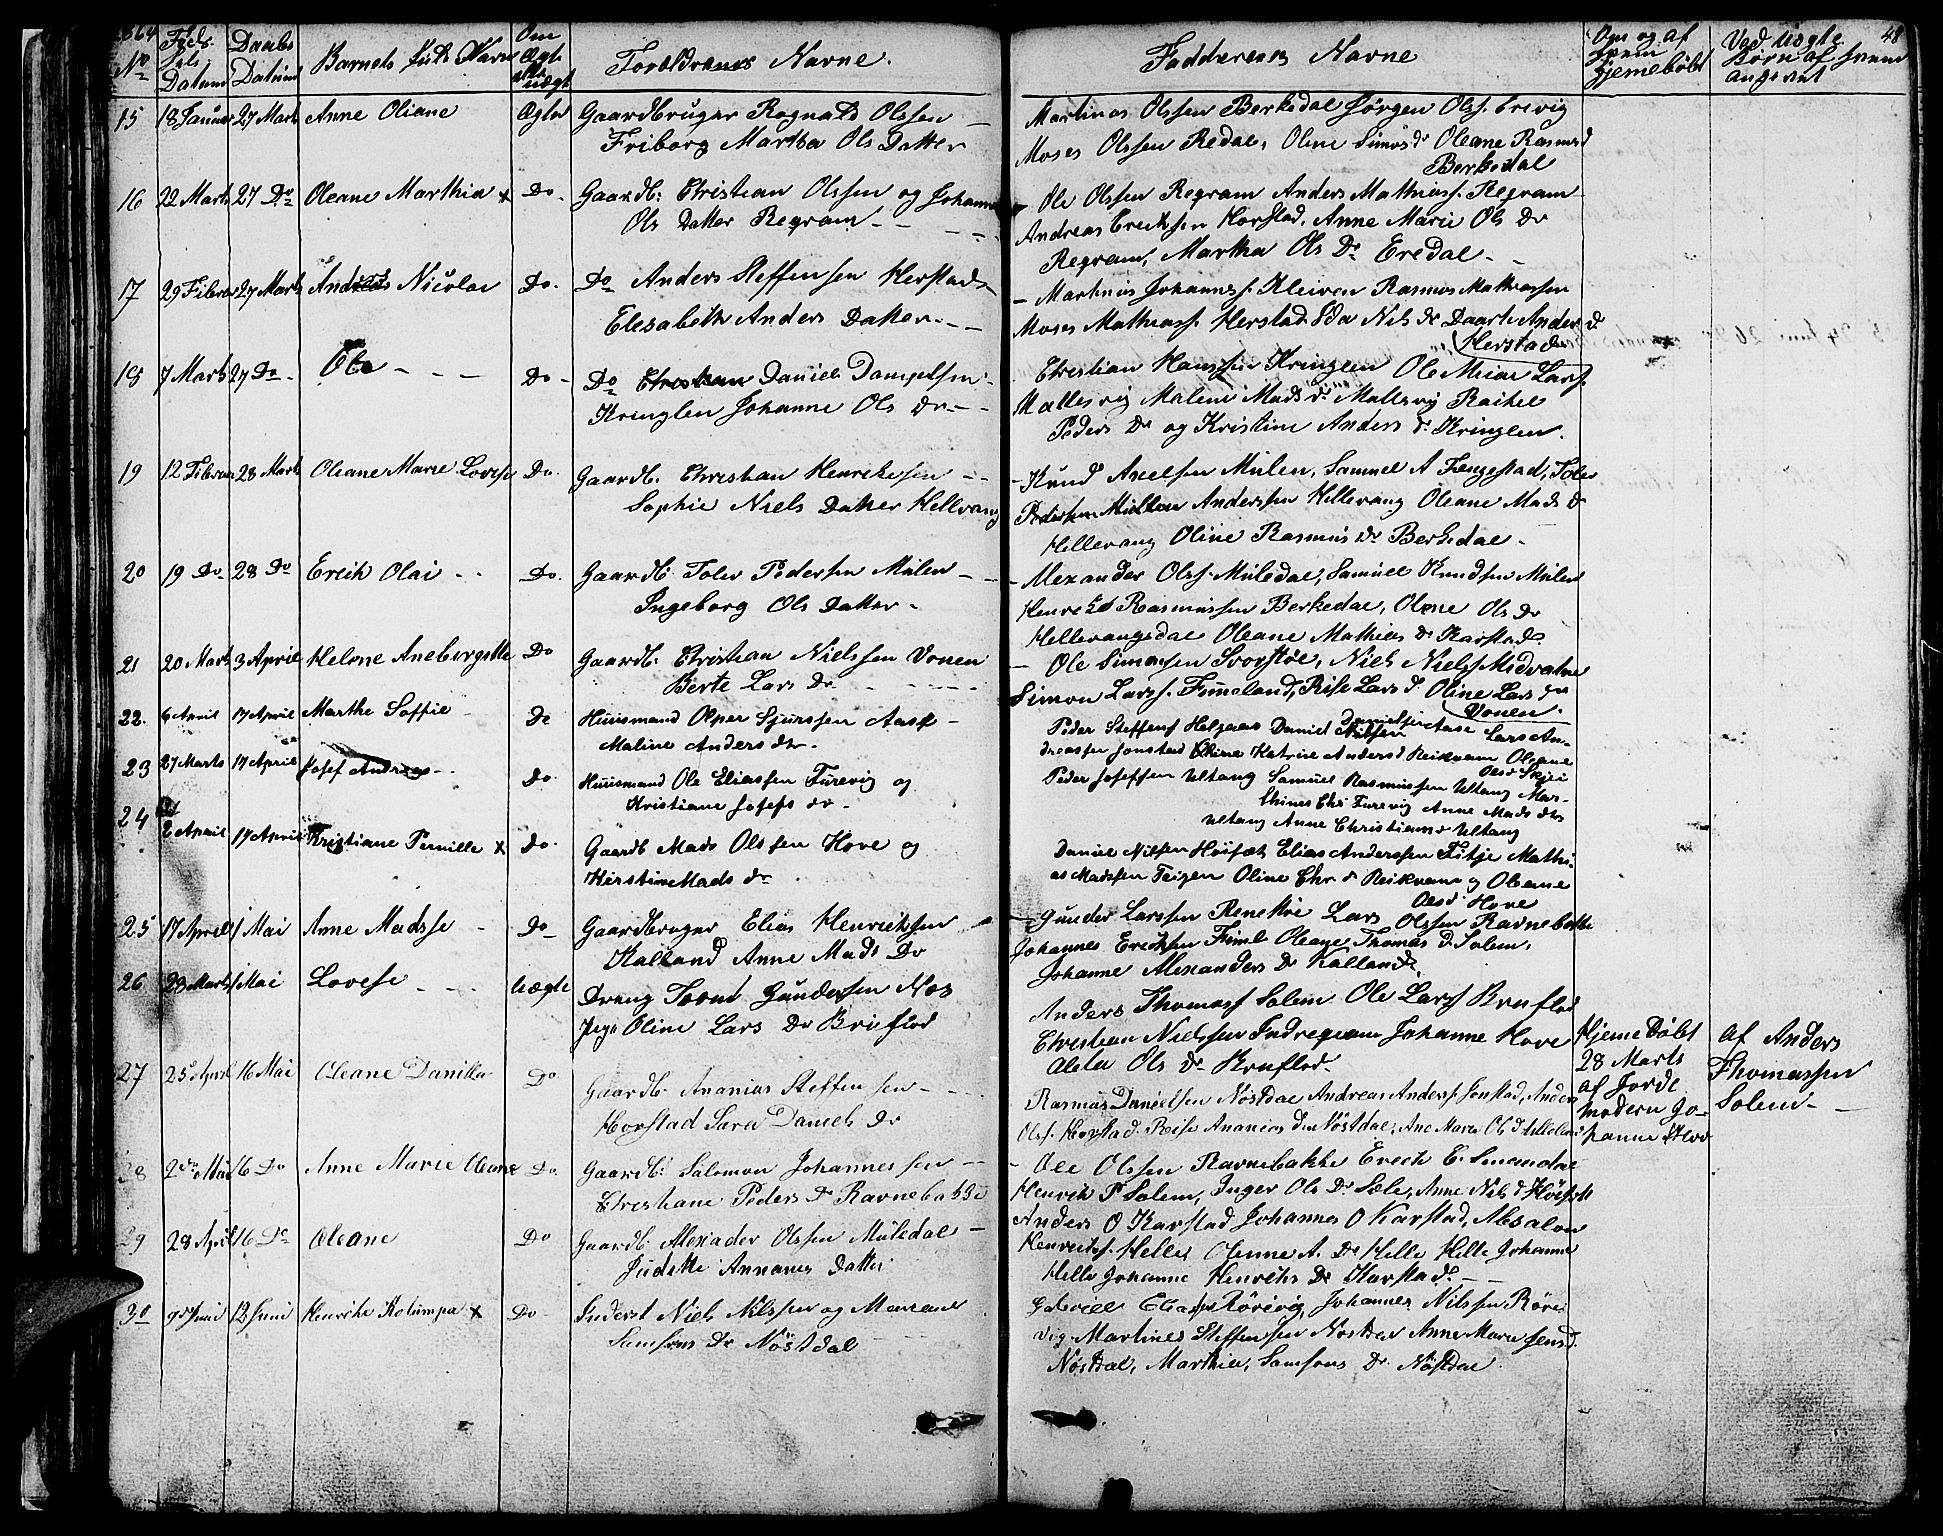 1864
No
Fødsels Datum
Daabs Datum
Barnets fulde Navn
Om Ægte eller uægte
Forældrenes Navne.
Faddernes Navne
Om og af hvem hjemmedøbt
Ved Uægte Børn af hvem angivet
48
15 18 Januar 27 Marts Anne Oliane Ægte Gaardbruger Ragnald Olssen
Friborg Martha Ols Datter
Martinus Olssen Berkedal Jørgen Olss. Erevig
Moses Olssen Redal, Oline Simons Dr Oleane Rasmus d
Berkedal
16 22 Marts 27 Do Oleane Marthia x Do. Gaardb: Christian Olssen og Johanne
Ols Datter Regram
Ole Olssen Regram Anders Mathiass. Regram
Andreas Erickssen Horstad, Anne Marie Ols Dr
Regram, Martha Ols Dr Eredal
17 29 Februar 27 Marts Nicolai Do. Do Anders Steffensen Herstad
Elesabeth Anders Datter
Martinus Johanness. Kleiven Rasmus Mathiassen
Moses Mathiass. Herstad Ida Nils Dr Daarte Anders d
Herstad
18 7 Marts 27 Do Ole Do Do Daniel Danielsen
Kringlen Johanne Ols Dr
Christian Hanssen Kringlen Ole Lars.
Mallesvig Maline Mads Dr Mallsvig Rachel
Peders Dr og Kristine Anders d. Kringlen.
19 12 Februar 28 Marts Oleane Marie Lovise Do. Gaardb. Christian Henrickssen
Sophie Niels Datter Hellevang
Knud Axelsen Mulen, Samuel A Fengestad, Tolev
Pederssen Anderssen Hellevang Oleane Mads d
Hellevang Oline Rasmus Dr Berkedal
20 19 Do 28 Do Erick Olai Do. Gaardb. Tolev Pederssen Mulen
Ingeborg Ols Datter
Alexander Olss. Muledal, Samuel Knudssen Mulen
Rasmussen Berkedal, Oline Ols Dr
Hellevangsdal Oleane Mathias Dr Karstad
21 20 Marts 3 April Helene Do Gaardb. Christian Nielssen Vonen
Berte Lars Dr
Ole Simonsen Svorstøe, Niels Nielss.
Simon Larss. Fimeland, Rise Lars d. Oline Lars Dr
Vonen.
22. 6 April 17 April Marthe Soffie Do Huusmand Sjurssen Aase
Maline Anders dr.
Peder Steffens Helgaas Daniel Danielsen Aase Lars An-
dreassen Jonstad Katrine Anders d Reikvam Oleane
23 27 Marts 17 April Josef Andreas Do Huusmand Ole Eliassen Furevig og
Kristiane Josefs dr.
Peder Joseffsen Ultang Samuel Rasmussen Ultang Mar-
thines Chr Furevig Anne Mads dtr
Ultang Anne Christians d Ultang
24 2 April 17 April Kristiane Pernille x Do. Gaardb Mads Olssen Hove og
Kirstine Mads dr
Daniel Nilssen Høisæt Elias Anderssen Fitje Mathi-
as Madssen Teigen Oline Chr d Reikvam og Oleane
Olsd Hove
25 17 April 1 Mai Anne Madsse Do Gaardbruger Elias Henrickssen
Kalland Anne Mads Dr
Gunder Larssen Lars Olssen Ravnebakke
Johannes Erickssen Oleane Thomas D. Solem,
Johanne Alexanders Dr Kalland.
26 1 Mai Lovise Uægte Dreng Gunderssen Moe
Pige Oline Lars Dr Bruflod
Anders Thomass Solem Ole Larss Bruflod
Christian Nielssen Indregaam Johanne Hove
Ols Dr Bruflod
Hjemedøbt
28 Marts
af Jorde
modern Jo-
hanne Hove
af Anders
Thomassen
Solem
27 25 April 16 Mai Oleane Danilla Do Gaardb. Ananias Steffensen
Horstad Sara Daniels Dr
Rasmus Danielsen Nøstdal Andreas Anderss. Jonstad, Anders
Olss. Horstad. Reise Ananias d. Nøstdal,
28 2den Mai 16 Do Anne Marie Oleane Do. Gaardb: Salomon Johannessen
Christiane Peders Dr Ravnebakke
Ole Olssen Ravnebakke Erick E.
Henrik P Solem, Inger Ols Dr Sæle, Anne Niels d Høisæt
29 28 April 16 Do Oleane Do Gaardb: Alexader Olssen Muledal
Judette Annanias Datter
Anders O Karstad Johannes O Karstad, Absalon
Helle Olenne A. Dr Helle Helle Johanne
Helle Johanne Henriks Dr Karstad.
30 9de Juni 12 Juni Henrike Kolumpa x Do Inderst Niels Nilssen og Mariane
Samsons Dr Nøstdal
Gabriel Rørevig, Johannes Nilssen Røre-
vig Martines Steffensen Nøstdal Anne Marie d.
Nøstdal, Marthia, Samsons Dr. Nøstdal.